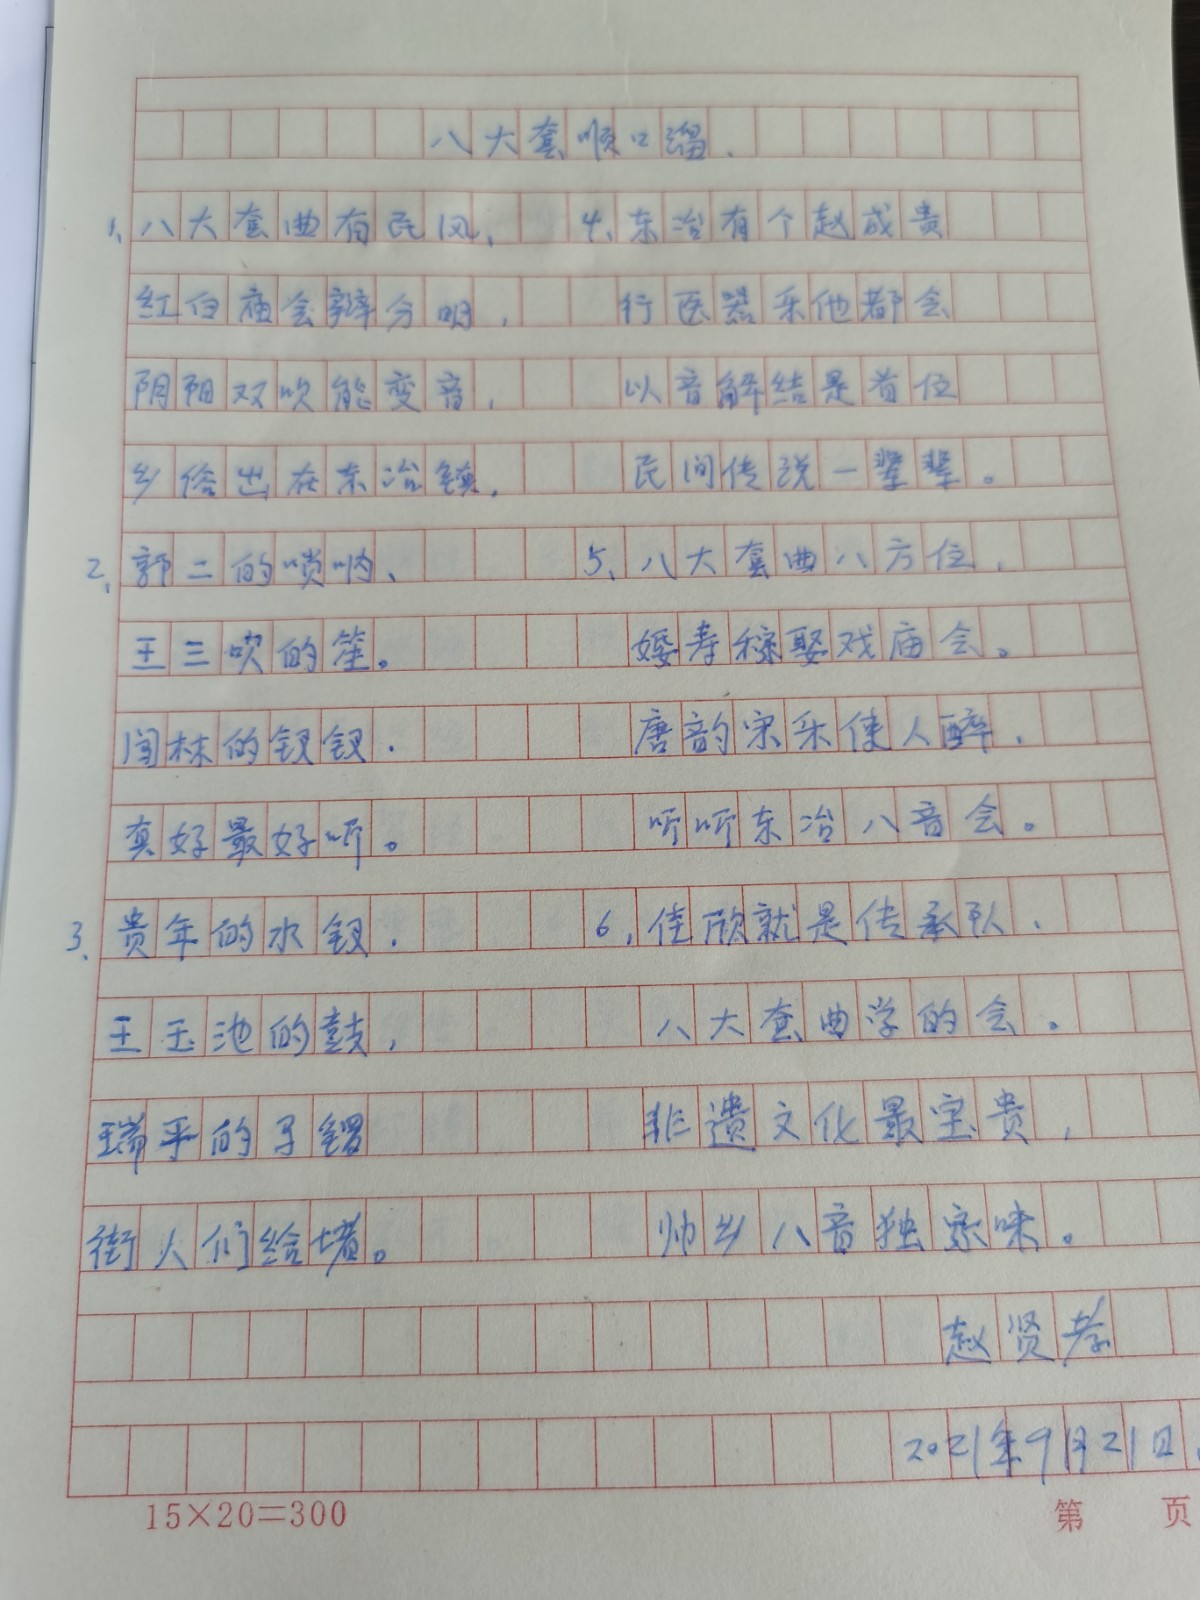 八大套顺口溜.
1、八大套曲有民风,
红白庙会辨分明,
阴阳双吹能变音,
乡俗出在东冶镇,
2、郭二的唢呐、
王三吹的笙。
闫林的钗钗.
真好最好听。
3、贵年的水钗.
王玉池的鼓,
瑞平的手锣
街人们给堵。
4、东冶有个赵成贵
行医器乐他都会
以音解结是首位
民间传说一辈辈。
5、八大套曲八方位,
婚寿稼娶戏庙会。
唐韵宋乐使人醉,
听听东冶八音会。
6、佳欣就是传承队,
八大套曲学的会。
非遗文化最宝贵,
帅乡八音独家味。
赵贤孝
2021年9月21日.
15×20=300
第 页